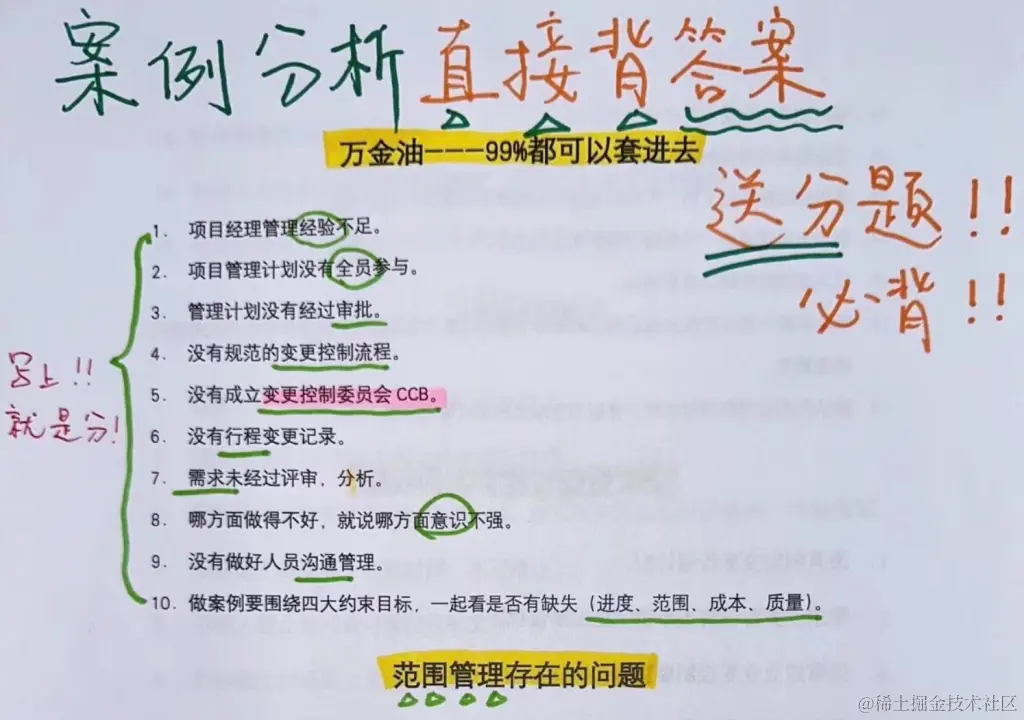 案例分析直接背答案
万金油---99%都可以套进去
送分题!!
必背!!
1. 项目经理管理经验不足。
2. 项目管理计划没有全员参与。
3. 管理计划没有经过审批。
4. 没有规范的变更控制流程。
5. 没有成立变更控制委员会 CCB。
6. 没有行程变更记录。
7. 需求未经过评审，分析。
8. 哪方面做得不好，就说哪方面意识不强。
9. 没有做好人员沟通管理。
10. 做案例要围绕四大约束目标，一起看是否有缺失（进度、范围、成本、质量）。
写上!!
就是分!
范围管理存在的问题
@稀土掘金技术社区